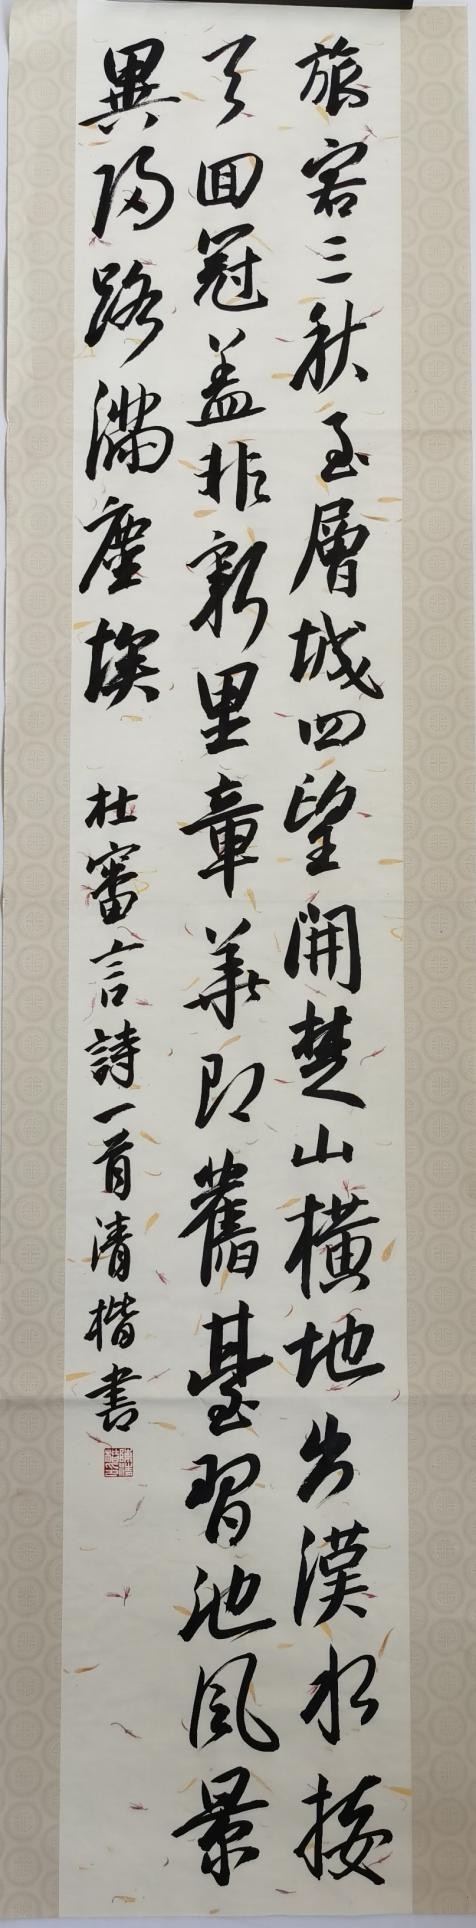 旅客三秋至層城四望開楚山橫地出漢水接
天回冠蓋非新里章華即舊臺習池風景
異歸路滿塵埃
杜審言詩一首清楷書